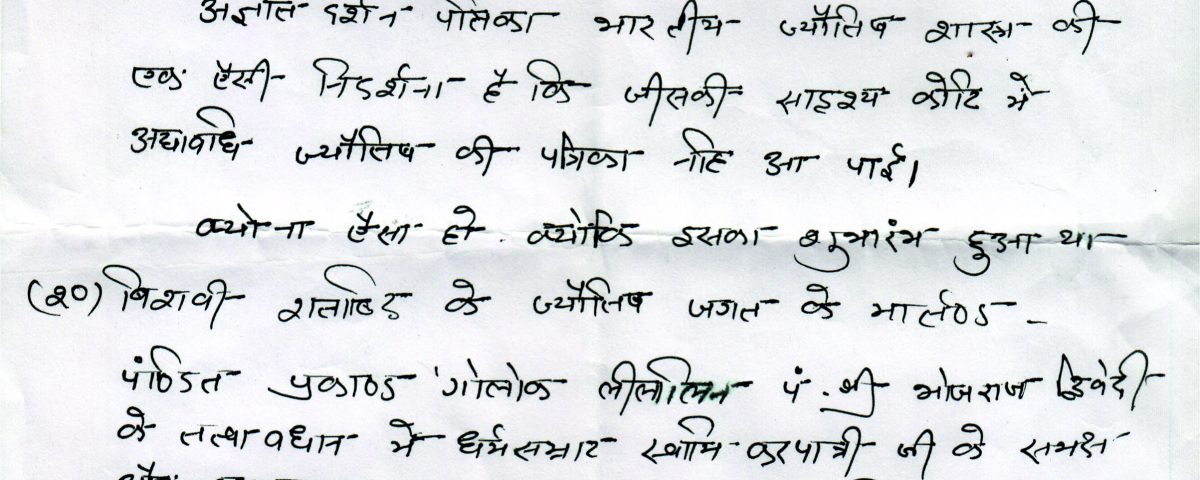 अज्ञात दर्शन पत्रिका भारतीय ज्यौतिष शास्त्र की
एक ऐसी निदर्शना है कि जीसकी सादृश्य कोटि में
अद्यावधि ज्यौतिष की पत्रिका नहि आ पाई।
क्यो ना ऐसा हो. क्योकि इसका शुभारंभ हुआ था
(२०) विशवी शताब्दि के ज्यौतिष जगत के मार्तण्ड -
पंण्डित प्रकाण्ड 'गोलोक लीलालिन पं. श्री भोजराज द्विवेदी
के तत्वावधान में धर्मसम्राट स्वामि करपात्री जी के समक्ष